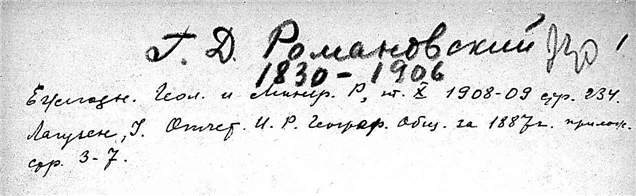 Г. Д. Романовский
1830 – 1906
Ежегодн. Геол. и Минер. Р, т. X 1908-09 стр. 234.
Лагузен, I. Отчет. И. Р. Географ. Общ. за 1887 г. прилож.
стр. 3-7.